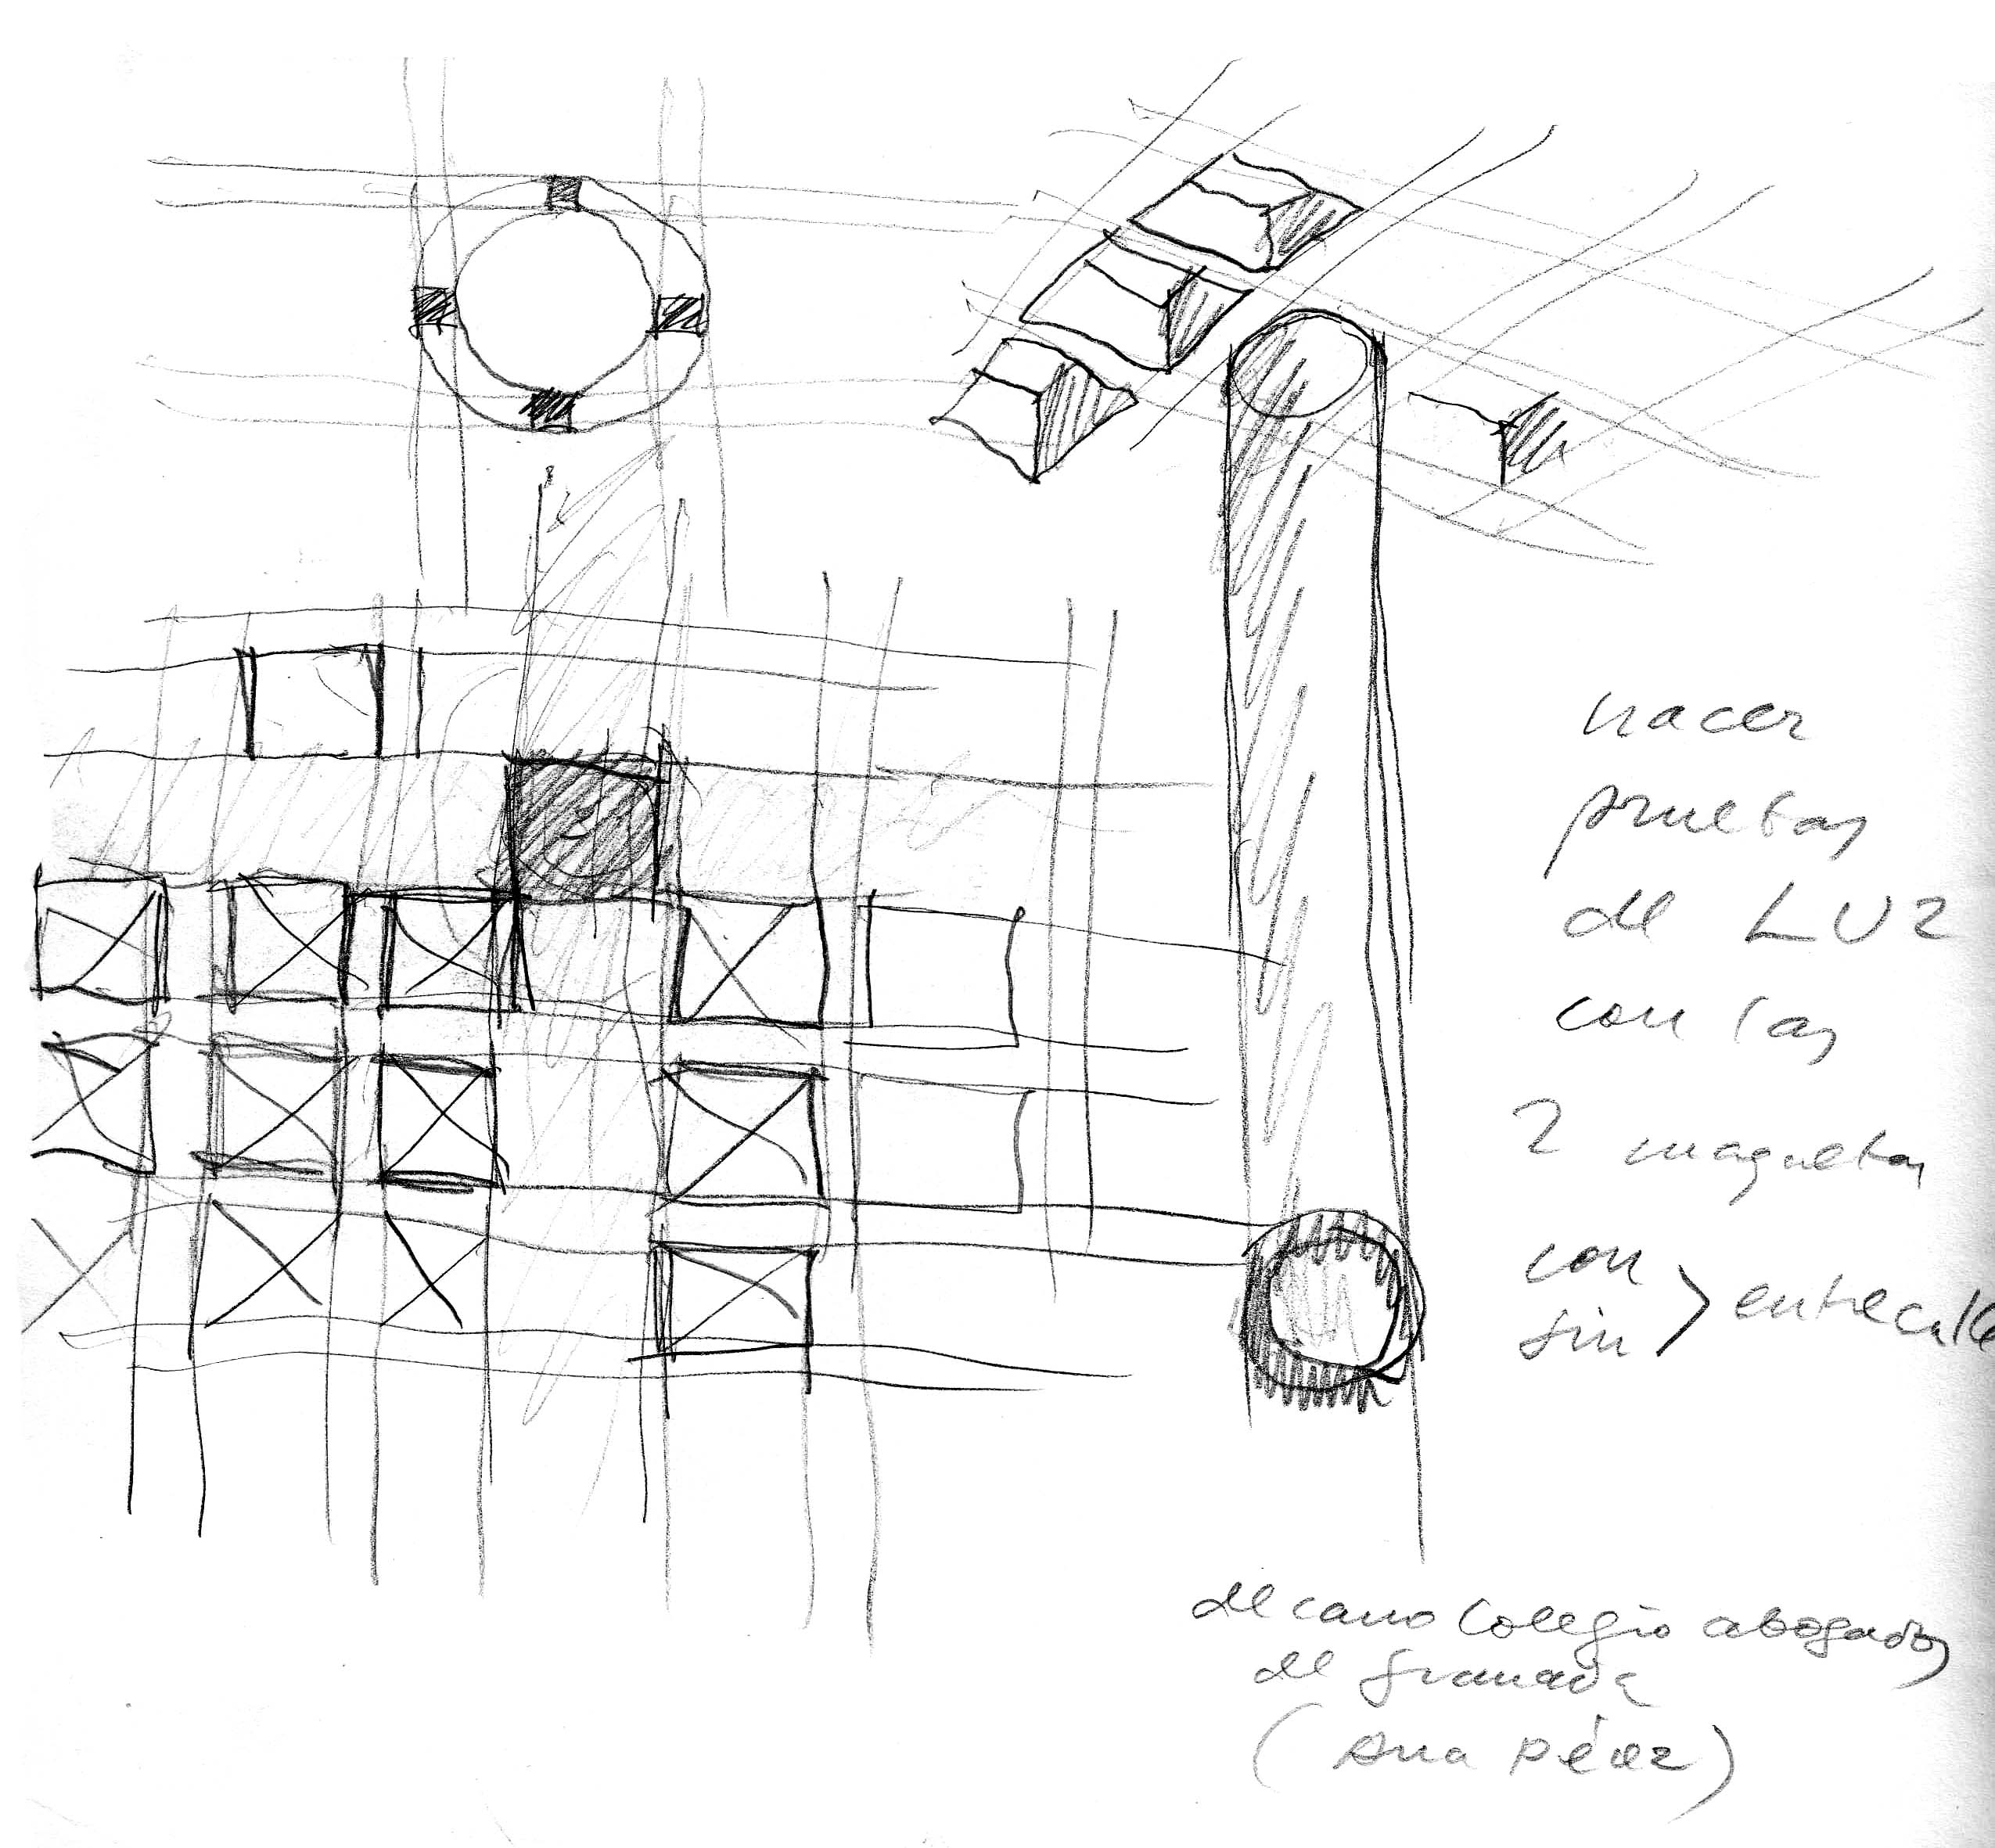 hacer
pruebas
de LUZ
con las
2 maquetas
con
sin > entrecalle
decano Colegio abogados
de Granada
(Ana Pérez)